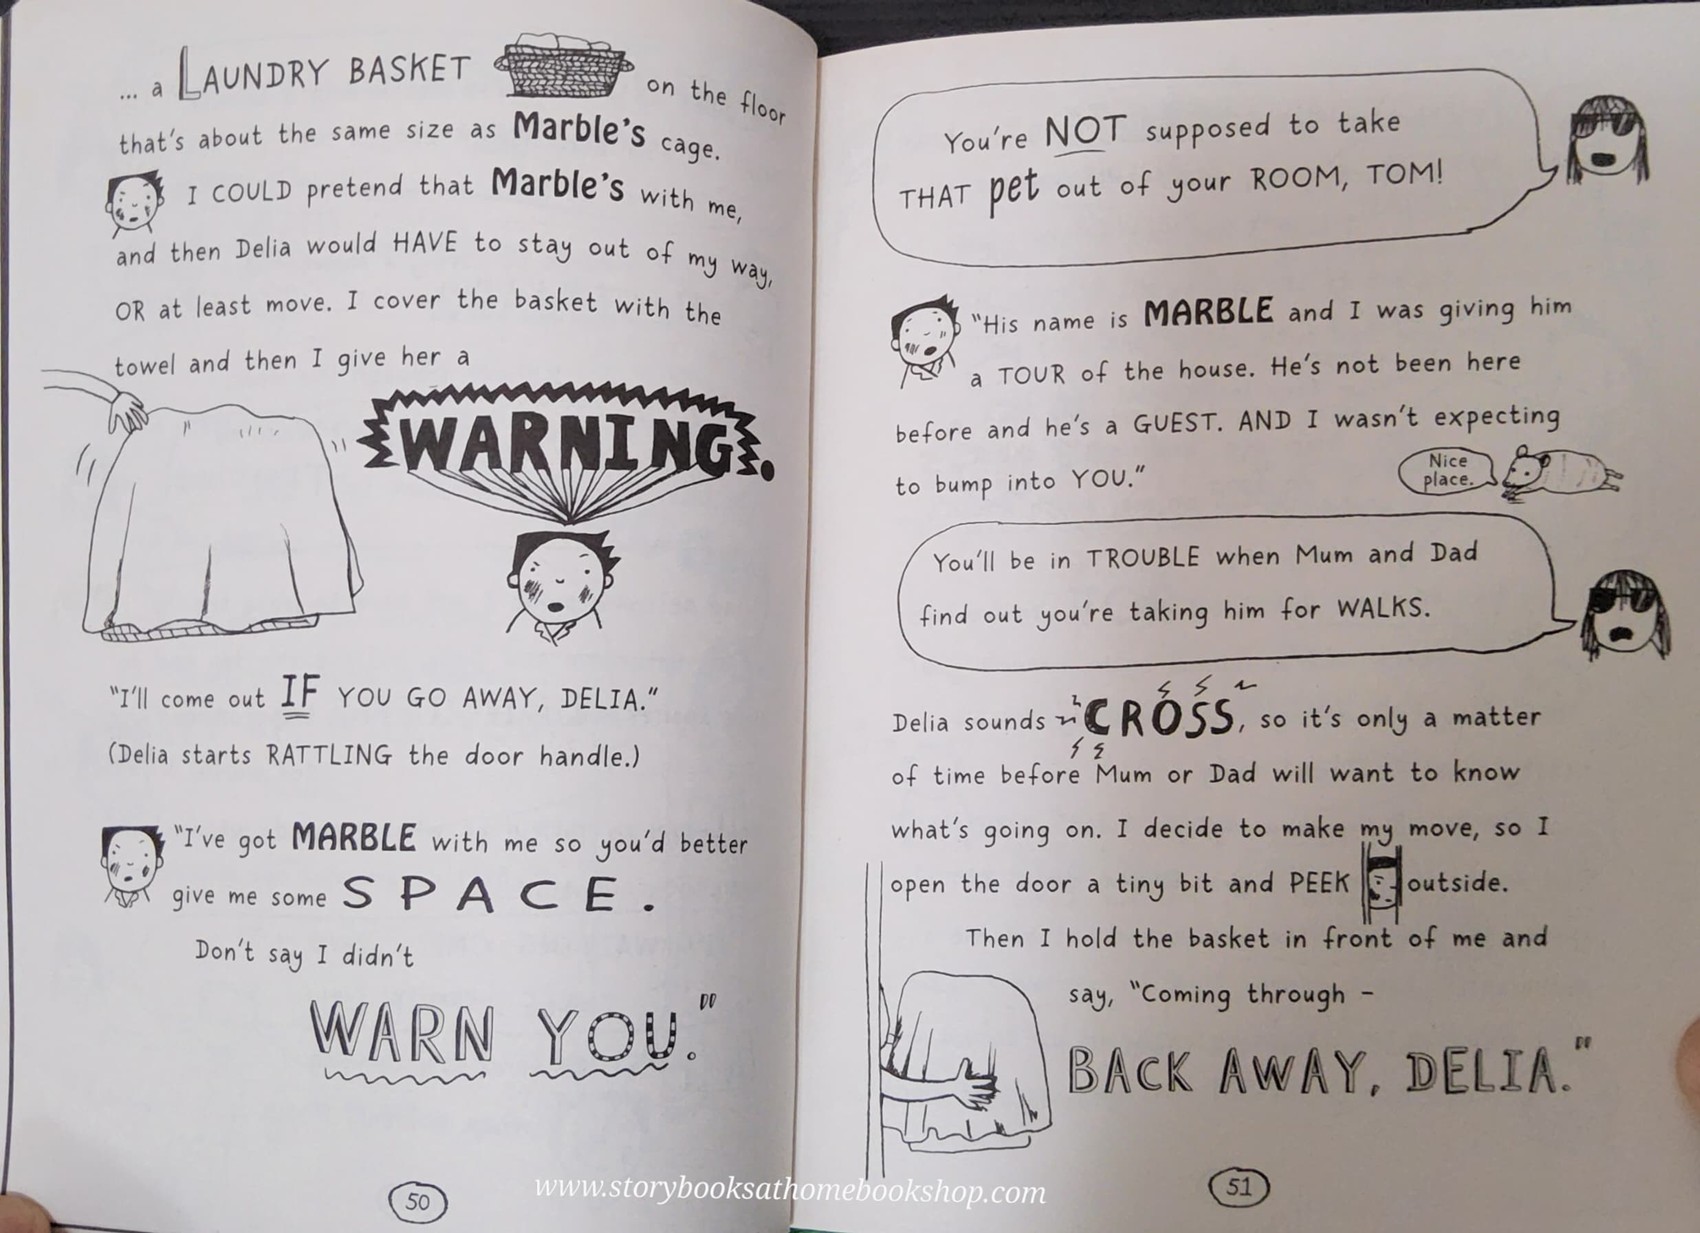 ... a LAUNDRY BASKET on the floor
that's about the same size as Marble's cage.
I COULD pretend that Marble's with me,
and then Delia would HAVE to stay out of my way,
OR at least move. I cover the basket with the
towel and then I give her a
WARNING.
"I'll come out IF YOU GO AWAY, DELIA."
(Delia starts RATTLING the door handle.)
"I've got MARBLE with me so you'd better
give me some SPACE.
Don't say I didn't
WARN YOU."
50
You're NOT supposed to take
THAT pet out of your ROOM, TOM!
"His name is MARBLE and I was giving him
a TOUR of the house. He's not been here
before and he's a GUEST. AND I wasn't expecting
to bump into YOU."
Nice
place.
You'll be in TROUBLE when Mum and Dad
find out you're taking him for WALKS.
Delia sounds CROSS, so it's only a matter
of time before Mum or Dad will want to know
what's going on. I decide to make my move, so I
open the door a tiny bit and PEEK outside.
Then I hold the basket in front of me and
say, "Coming through –
BACK AWAY, DELIA."
51
www.storybooksathomebookshop.com